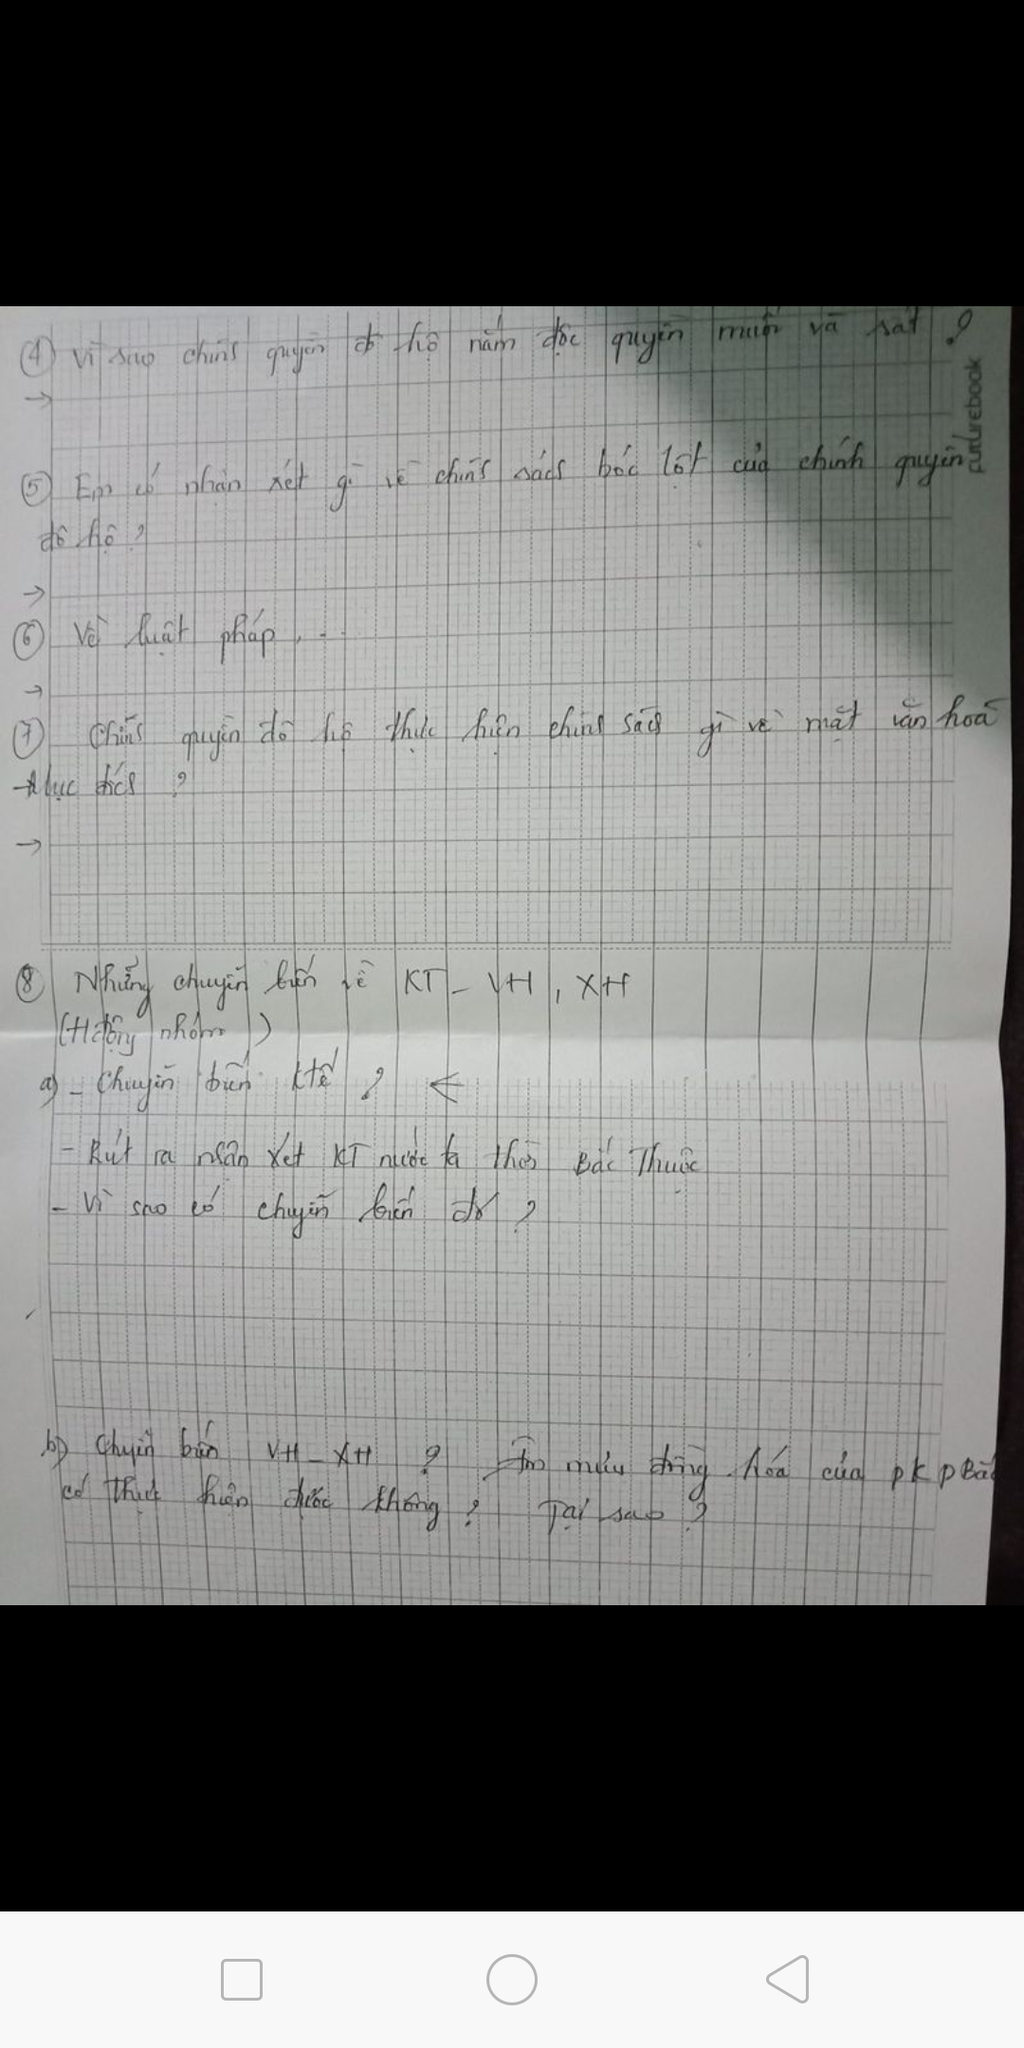 ④ Vì sao chính quyền đô hộ nắm độc quyền muối và sắt ?
→
⑤ Em có nhận xét gì về chính sách bóc lột của chính quyền
đô hộ ?
→
⑥ Về luật pháp . . .
→
⑦ Chính quyền đô hộ thực hiện chính sách gì về mặt văn hoá
Mục đích ?
→
⑧ Những chuyển biến về KT - VH , XH
(Hđộng nhóm)
a) - Chuyển biến ktế ? ←
- Rút ra nhận xét KT nước ta thời Bắc Thuộc
- Vì sao có chuyển biến đó ?
b) Chuyển biến VH - XH ? Âm mưu đồng hóa của pk pBắc
có thực hiện được không ? Tại sao ?
FUTUREBOOK